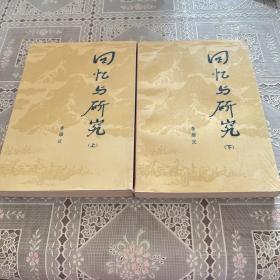 回忆与研究
(上)
李维汉
回忆与研究
(下)
李维汉